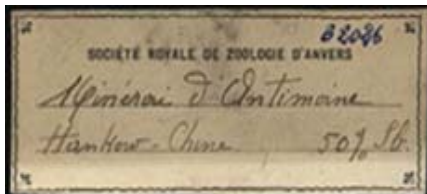 B2026
SOCIÉTÉ ROYALE DE ZOOLOGIE D'ANVERS
Minérai d'Antimoine
Hankow - Chine 50% Sb.